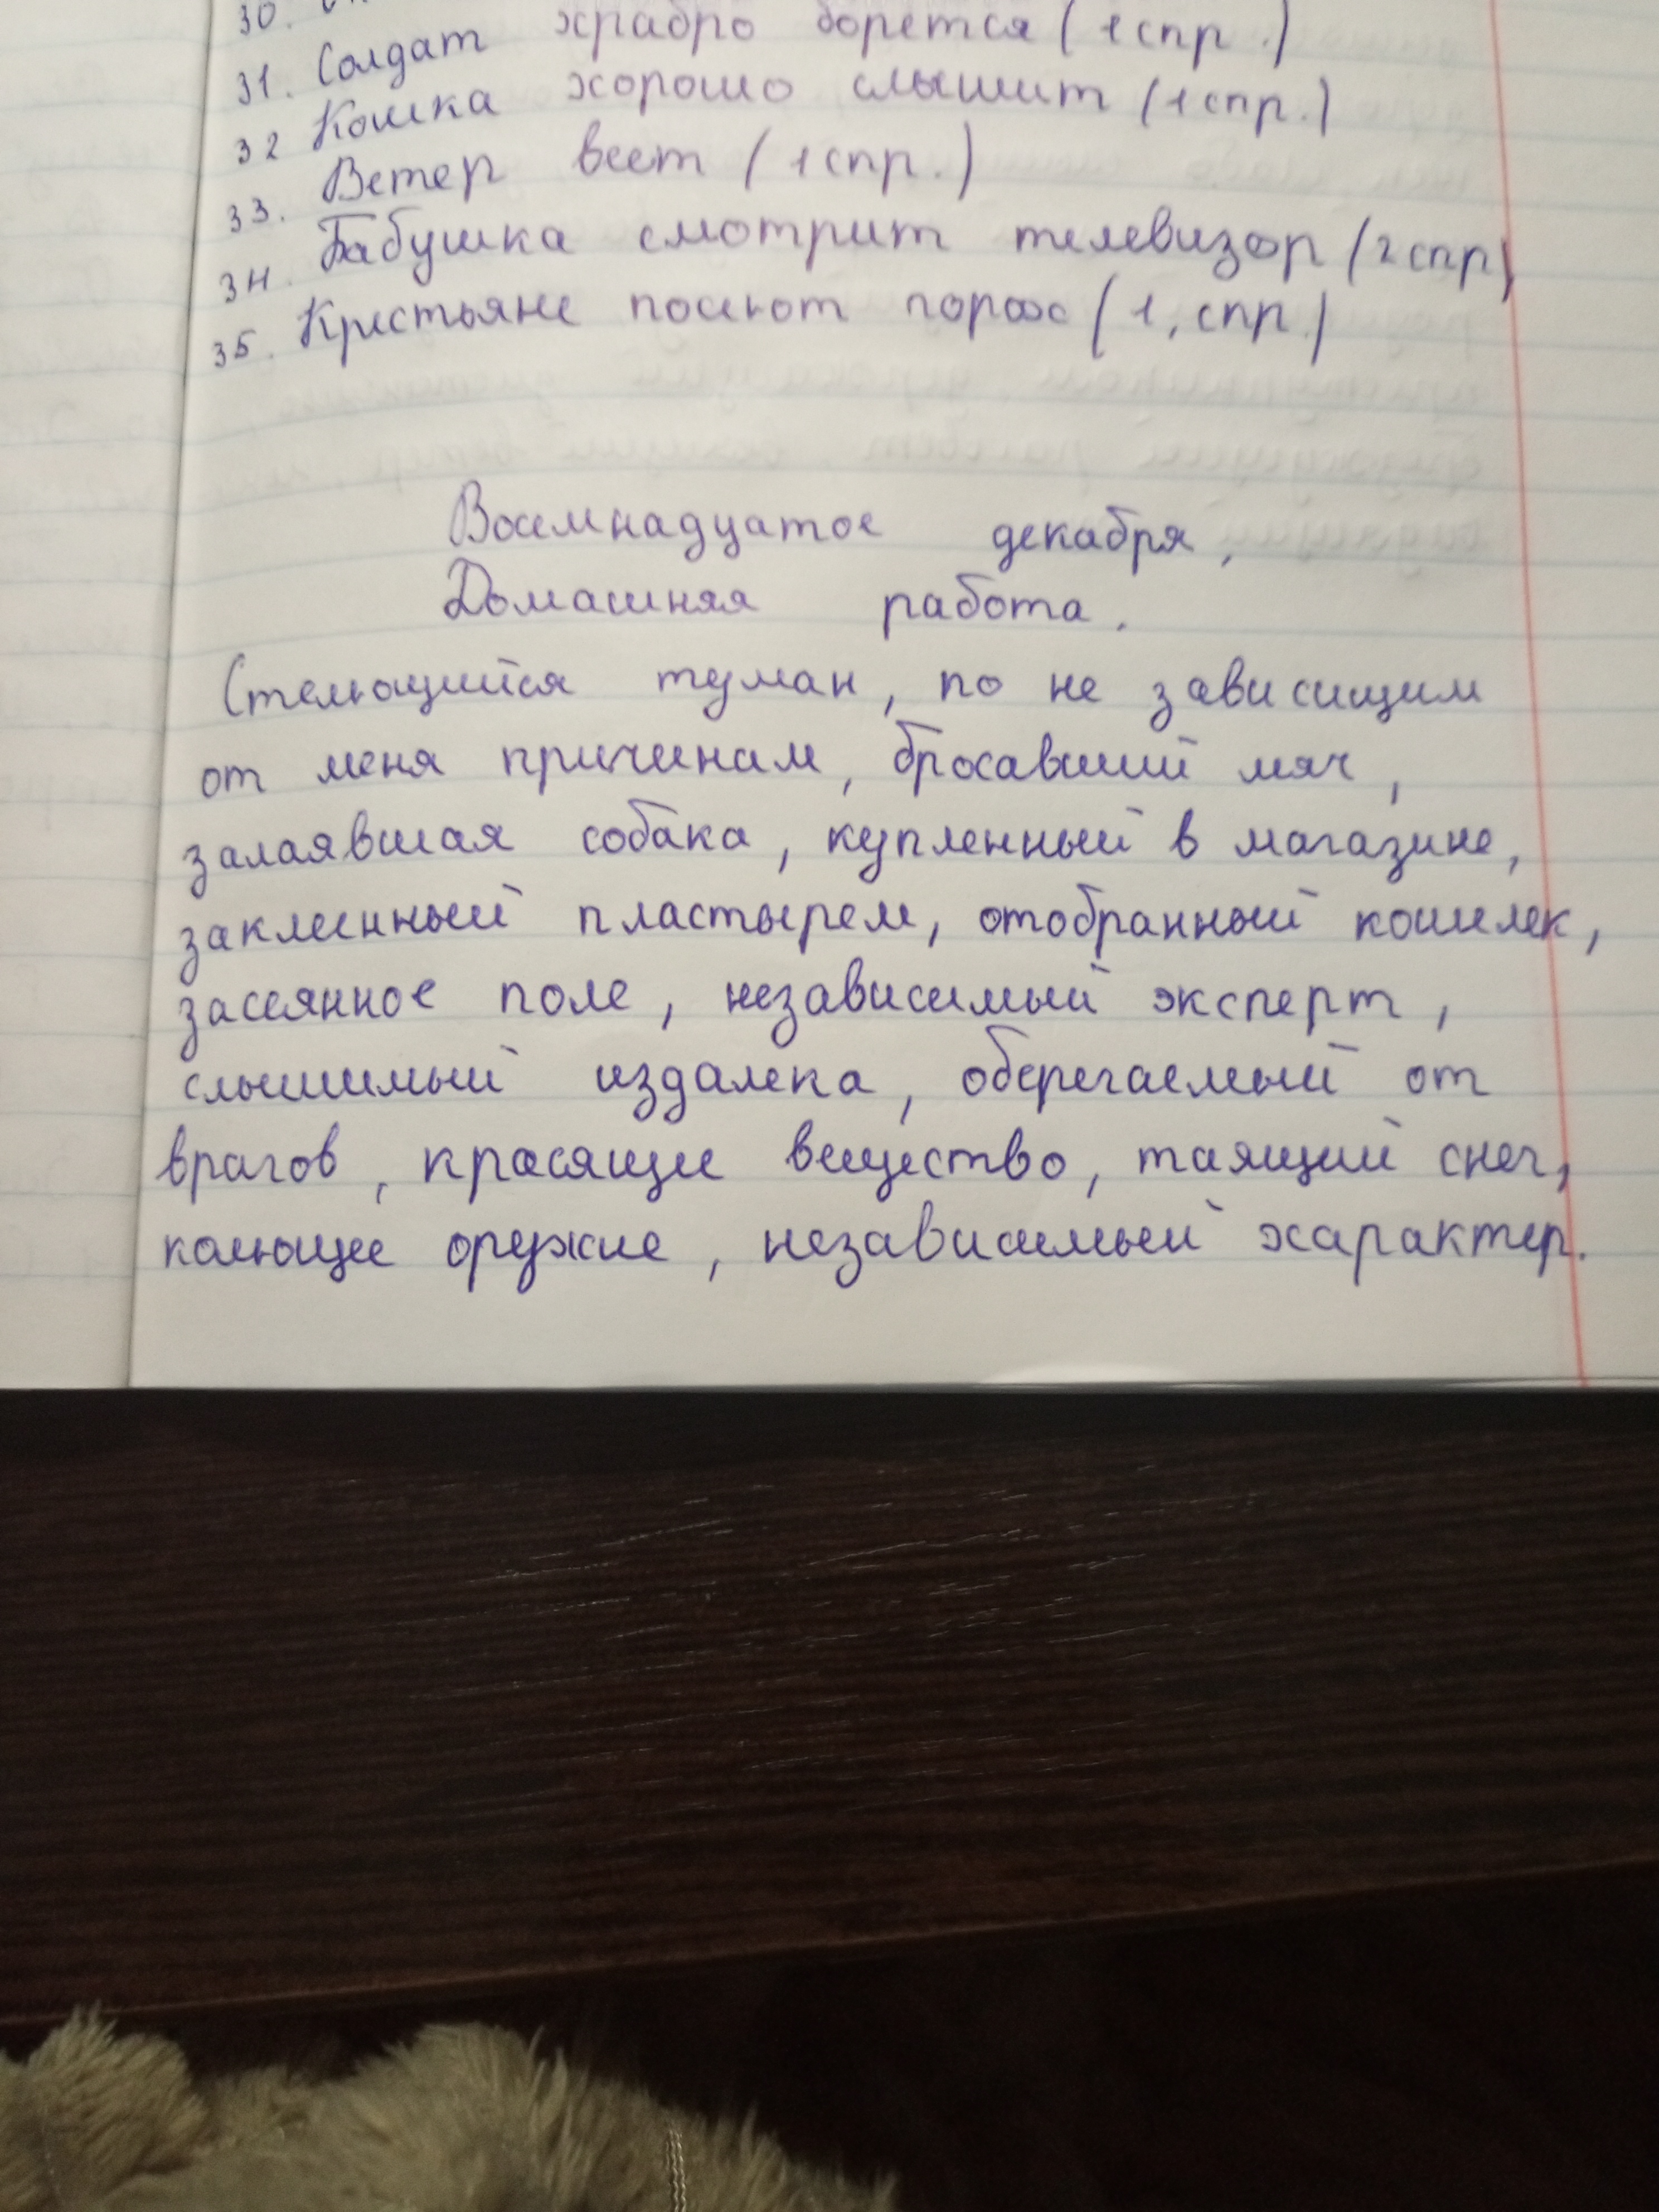 30.
31. Солдат храбро борется (1 спр.)
32 Кошка хорошо слышит (1 спр.)
33. Ветер веет (1 спр.)
34. Бабушка смотрит телевизор (2 спр)
35. Крестьяне посеют горох (1, спр.)
Восемнадцатое декабря.
Домашняя работа.
Стелющийся туман, по не зависищим
от меня причинам, бросавший мяч,
залаявшая собака, купленный в магазине,
заклеенный пластырем, отобранный кошелек,
засеянное поле, независимый эксперт,
слышимый издалека, оберегаемый от
врагов, красящее вещество, таящий снег,
колющее оружие, независимый характер.